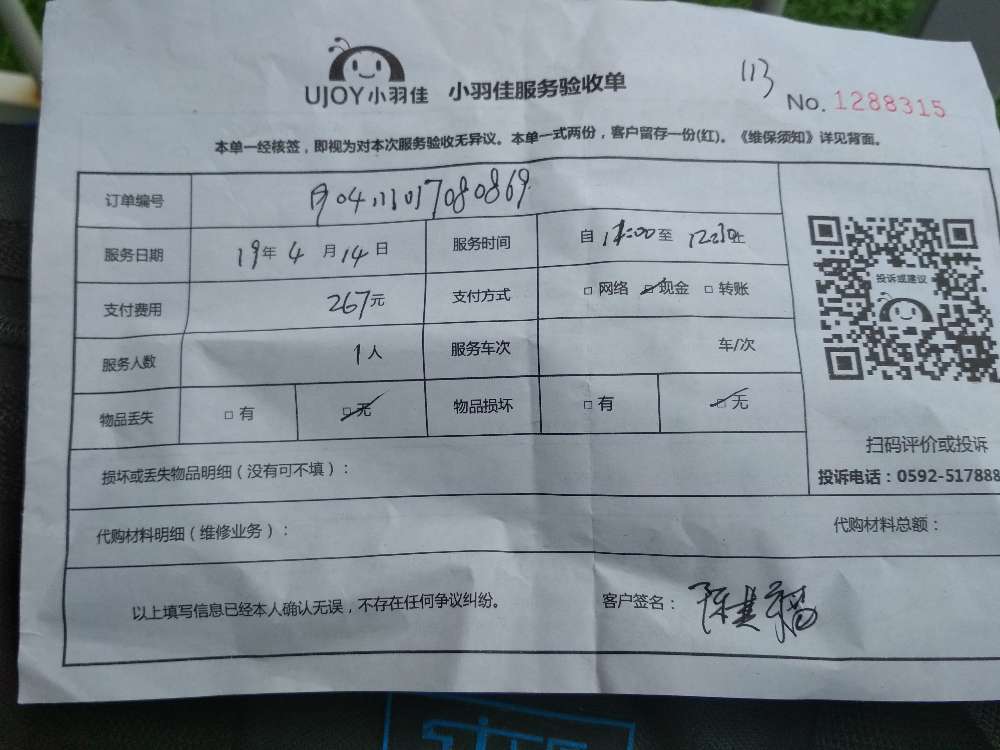 UJOY小羽佳 小羽佳服务验收单
113
No. 1288315
本单一经核签，即视为对本次服务验收无异议。本单一式两份，客户留存一份(红)。《维保须知》详见背面。
订单编号
服务日期 19年 4 月 14 日 服务时间 自 至 止
支付费用 267元 支付方式 □ 网络 □ 现金 □ 转账
服务人数 1 人 服务车次 车/次
物品丢失 □ 有 □ 无 物品损坏 □ 有 □ 无
投诉或建议
扫码评价或投诉
投诉电话：0592-517888
损坏或丢失物品明细（没有可不填）：
代购材料明细（维修业务）： 代购材料总额：
以上填写信息已经本人确认无误，不存在任何争议纠纷。 客户签名：